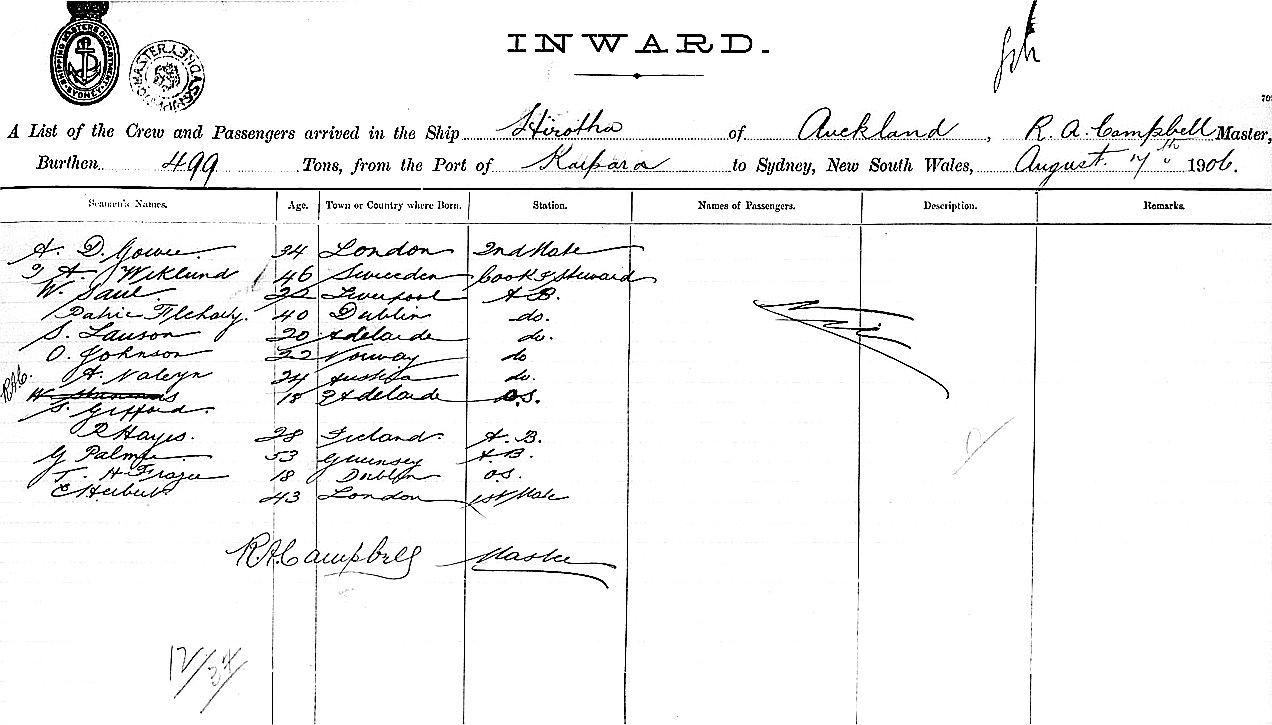 SHIPPING MASTERS DEPARTMENT SYDNEY
INWARD.
A List of the Crew and Passengers arrived in the Ship Hirotha of Auckland, R. A. Campbell Master,
Burthen 499 Tons, from the Port of Kaipara to Sydney, New South Wales, August 17th 1906.
Seamen's Names. Age. Town or Country where Born. Station. Names of Passengers. Description. Remarks.
A. D. Gowe 34 London 2nd Mate
A. Wiklund 46 Sweeden Cook & Steward
W. Saul. 22 Liverpool A B.
40 Dublin do.
S. Lauson 20 Adelaide do.
O. Johnson 22 Norway do
A. 24 Austria do.
18 Adelaide O.S.
S. Gifford.
R Hayes. 28 Ireland. A. B.
G Palmer 53 Guernsey A.B.
T. H Frazer 18 Dublin O.S.
C Herbert 43 London 1st Mate
R A Campbell Master
12/34